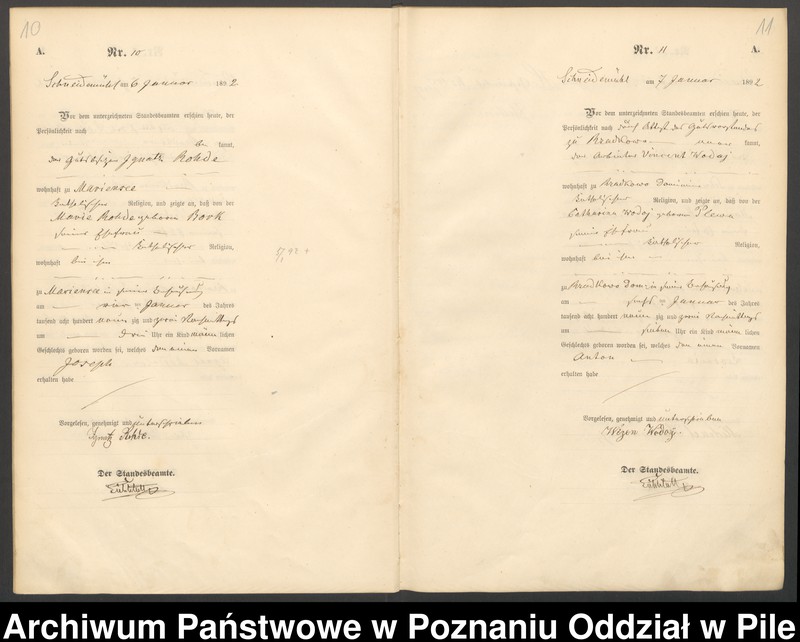 10
A. Nr. 10
Schneidemühl am 6 Januar 1892.
Vor dem unterzeichneten Standesbeamten erschien heute, der
Persönlichkeit nach
be kannt,
der Gutsbesitzer Ignatz Rohde
wohnhaft zu Mariensee
katholischer Religion, und zeigte an, daß von der
Marie Rohde geborne Bork
seiner Ehefrau
katholischer Religion,
wohnhaft bei ihm
zu Mariensee in seiner Behausung
am vier ten Januar des Jahres
tausend acht hundert neun zig und zwei Nachmittags
um drei Uhr ein Kind männ lichen
Geschlechts geboren worden sei, welches den einen Vornamen
Joseph
erhalten habe
Vorgelesen, genehmigt und unterschrieben
Ignatz Rohde.
Der Standesbeamte.
11
Nr. 11 A.
Schneidemühl am 7 Januar 1892
Vor dem unterzeichneten Standesbeamten erschien heute, der
Persönlichkeit nach durch Attest des Gutsvorstandes
zu Brodkowo kannt,
der Arbeiter Vincent Wodaj
wohnhaft zu Dominium
katholischer Religion, und zeigte an, daß von der
Catharina Wodaj geborne Plewa
seiner Ehefrau
katholischer Religion,
wohnhaft bei ihm
zu Dom: in seiner Behausung
am sechs ten Januar des Jahres
tausend acht hundert neun zig und zwei Nachmittags
um sieben Uhr ein Kind männ lichen
Geschlechts geboren worden sei, welches den einen Vornamen
Anton
erhalten habe
Vorgelesen, genehmigt und unterschrieben
Der Standesbeamte.
Archiwum Państwowe w Poznaniu Oddział w Pile